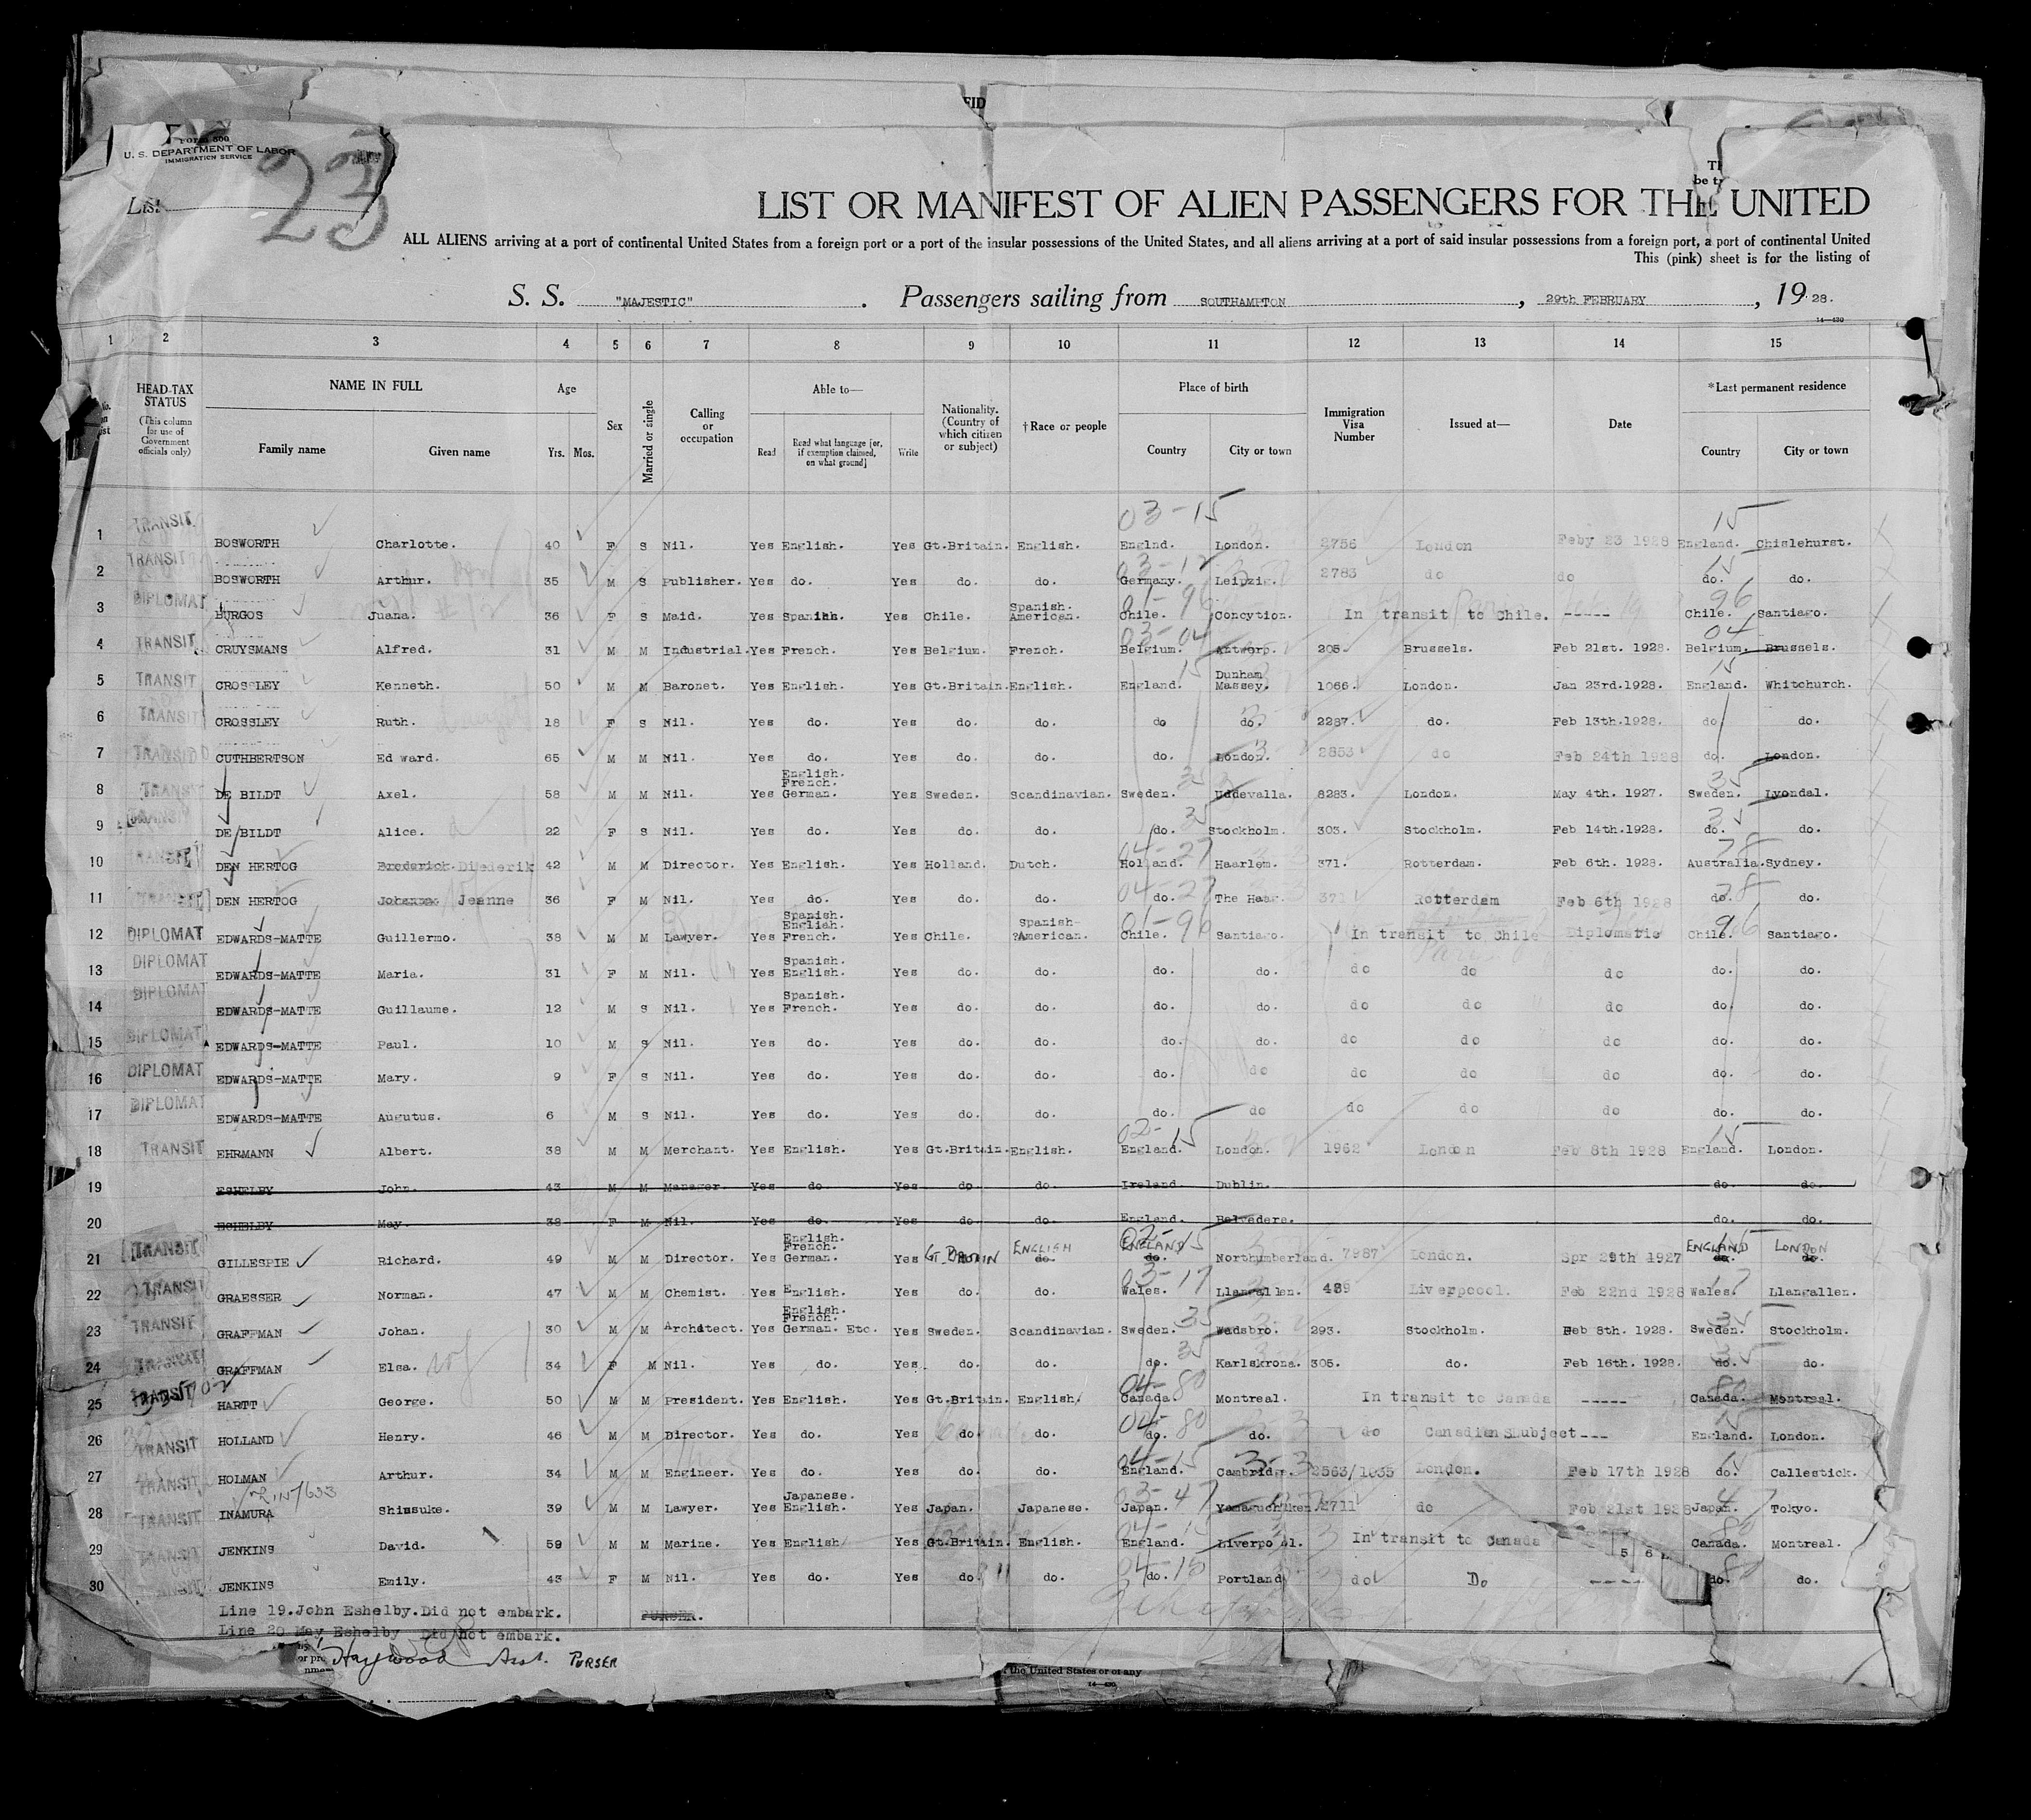 FID
Form 500
U. S. DEPARTMENT OF LABOR
IMMIGRATION SERVICE
List
23
be tr
LIST OR MANIFEST OF ALIEN PASSENGERS FOR THE UNITED
ALL ALIENS arriving at a port of continental United States from a foreign port or a port of the insular possessions of the United States, and all aliens arriving at a port of said insular possessions from a foreign port, a port of continental United
This (pink) sheet is for the listing of
S. S. "MAJESTIC" . Passengers sailing from SOUTHAMPTON , 29th FEBRUARY , 19 28.
14—430
1 2 3 4 5 6 7 8 9 10 11 12 13 14 15
HEAD-TAX STATUS (This column for use of Government officials only) NAME IN FULL Age Sex Married or single Calling or occupation Able to— Nationality. (Country of which citizen or subject) †Race or people Place of birth Immigration Visa Number Issued at— Date *Last permanent residence
Family name Given name Yrs. Mos. Read Read what language [or, if exemption claimed, on what ground] Write Country City or town Country City or town
03-15 15
1 TRANSIT BOSWORTH Charlotte. 40 F S Nil. Yes English. Yes Gt.Britain. English. Englnd. London. 2756 London Feby 23 1928 England. Chislehurst.
2 TRANSIT BOSWORTH Arthur. 35 M S Publisher. Yes do. Yes do. do. Germany. Leipzig. 2783 do do do. do.
3 DIPLOMAT BURGOS Juana. 36 F S Maid. Yes Spanish. Yes Chile. Spanish. American. 01-96 Chile. Concytion. In transit to Chile. ----- 96 Chile. Santiago.
4 TRANSIT CRUYSMANS Alfred. 31 M M Industrial. Yes French. Yes Belgium. French. 03-04 Belgium. Antwerp. 205. Brussels. Feb 21st. 1928. 04 Belgium. Brussels.
5 TRANSIT CROSSLEY Kenneth. 50 M M Baronet. Yes English. Yes Gt.Britain. English. 15 England. Dunham Massey. 1066. London. Jan 23rd.1928. 15 England. Whitchurch.
6 TRANSIT CROSSLEY Ruth. 18 F S Nil. Yes do. Yes do. do. do do. 2287. do. Feb 13th.1928. do do.
7 TRANSIT CUTHBERTSON Ed ward. 65 M M Nil. Yes do. Yes do. do. do. London. 2853 do Feb 24th 1928 do. London.
8 TRANSIT DE BILDT Axel. 58 M M Nil. Yes English. French. German. Yes Sweden. Scandinavian. 35 Sweden. Uddevalla. 8283. London. May 4th. 1927. 35 Sweden. Lyondal.
9 TRANSIT DE BILDT Alice. 22 F S Nil. Yes do. Yes do. do. 35 do. Stockholm. 303. Stockholm. Feb 14th.1928. do. do.
10 TRANSIT DEN HERTOG Frederich. Diederik 42 M M Director. Yes English. Yes Holland. Dutch. 04-27 Holland. Haarlem. 371. Rotterdam. Feb 6th. 1928. 78 Australia. Sydney.
11 TRANSIT DEN HERTOG Johanna. Jeanne 36 F M Nil. Yes do. Yes do. do. 04-27 do. The Haag. 371 Rotterdam Feb 6th 1928 78 do. do.
12 DIPLOMAT EDWARDS-MATTE Guillermo. 38 M M Lawyer. Yes Spanish. English. French. Yes Chile. Spanish-American. 01-96 Chile. Santiago. In transit to Chile Diplomatic 96 Chile. Santiago.
13 DIPLOMAT EDWARDS-MATTE Maria. 31 F M Nil. Yes Spanish. English. Yes do. do. do. do. do do do do. do.
14 DIPLOMAT EDWARDS-MATTE Guillaume. 12 M S Nil. Yes Spanish. French. Yes do. do. do. do. do do do do. do.
15 DIPLOMAT EDWARDS-MATTE Paul. 10 M S Nil. Yes do. Yes do. do. do. do. do do do do. do.
16 DIPLOMAT EDWARDS-MATTE Mary. 9 F S Nil. Yes do. Yes do. do. do. do do do do do. do.
17 DIPLOMAT EDWARDS-MATTE Augutus. 6 M S Nil. Yes do. Yes do. do. do. do do do do do. do.
18 TRANSIT EHRMANN Albert. 38 M M Merchant. Yes English. Yes Gt.Britain. English. 02-15 England. London. 1962 London Feb 8th 1928 15 England. London.
19 ESHELBY John. 43 M M Manager. Yes do. Yes do do. Ireland. Dublin. do. do.
20 ESHELBY May. 38 F M Nil. Yes do. Yes do do. England. Belvedere. do. do.
21 TRANSIT GILLESPIE Richard. 49 M M Director. Yes English. French. German. Yes GT. BRITAIN ENGLISH do. 02-15 ENGLAND do. Northumberland. 7987 London. Spr 29th 1927 15 ENGLAND do. LONDON do.
22 TRANSIT GRAESSER Norman. 47 M M Chemist. Yes English. Yes do. do. 03-17 Wales. Llangallen. 489 Liverpool. Feb 22nd 1928 17 Wales. Llangallen.
23 TRANSIT GRAFFMAN Johan. 30 M M Architect. Yes English. French. German. Etc. Yes Sweden. Scandinavian. 35 Sweden. Wadsbro. 293. Stockholm. Feb 8th. 1928. 35 Sweden. Stockholm.
24 TRANSIT GRAFFMAN Elsa. 34 F M Nil. Yes do. Yes. do. do. 35 do. Karlskrona. 305. do. Feb 16th. 1928. 35 do. do.
25 TRANSIT HARTT George. 50 M M President. Yes English. Yes Gt.Britain. English. 04-80 Canada. Montreal. In transit to Canada ----- 80 Canada. Montreal.
26 TRANSIT HOLLAND Henry. 46 M M Director. Yes do. Yes do. do. 04-80 do. do. do Canadian Slubject --- 15 England. London.
27 TRANSIT HOLMAN Arthur. 34 M M Engineer. Yes do. Yes do. do. 04-15 England. Cambridge. 2563/1035 London. Feb 17th 1928 15 do. Callestick.
28 TRANSIT INAMURA Shinsuke. 39 M M Lawyer. Yes Japanese. English. Yes Japan. Japanese. 03-47 Japan. Yamaguchiken. 2711 do Feb 21st 1928 47 Japan. Tokyo.
29 TRANSIT JENKINS David. 59 M M Marine. Yes English Yes Gt.Britain. English. 04-15 England. Liverpool. In transit to Canada 5 6 80 Canada. Montreal.
30 TRANSIT JENKINS Emily. 43 F M Nil. Yes do. Yes do. do. 04-15 do. Portland do Do ----- 80 do. do.
Line 19.John Eshelby.Did not embark. PURSER.
Line 20 May Eshelby Did not embark.
Haywood Asst. PURSER
the United States or of any
14—430